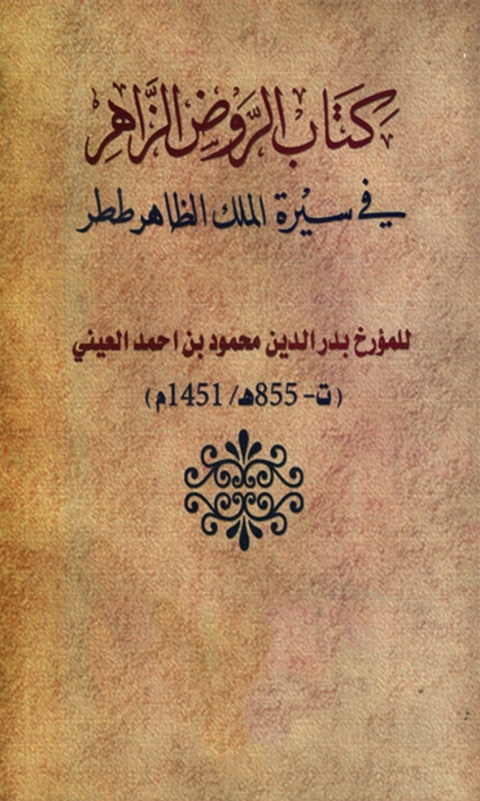 كتاب الرَّوض الزَّاهر
في سيرة الملك الظاهر ططر
للمؤرخ بدر الدين محمود بن احمد العيني
(ت- 855هـ/ 1451م)